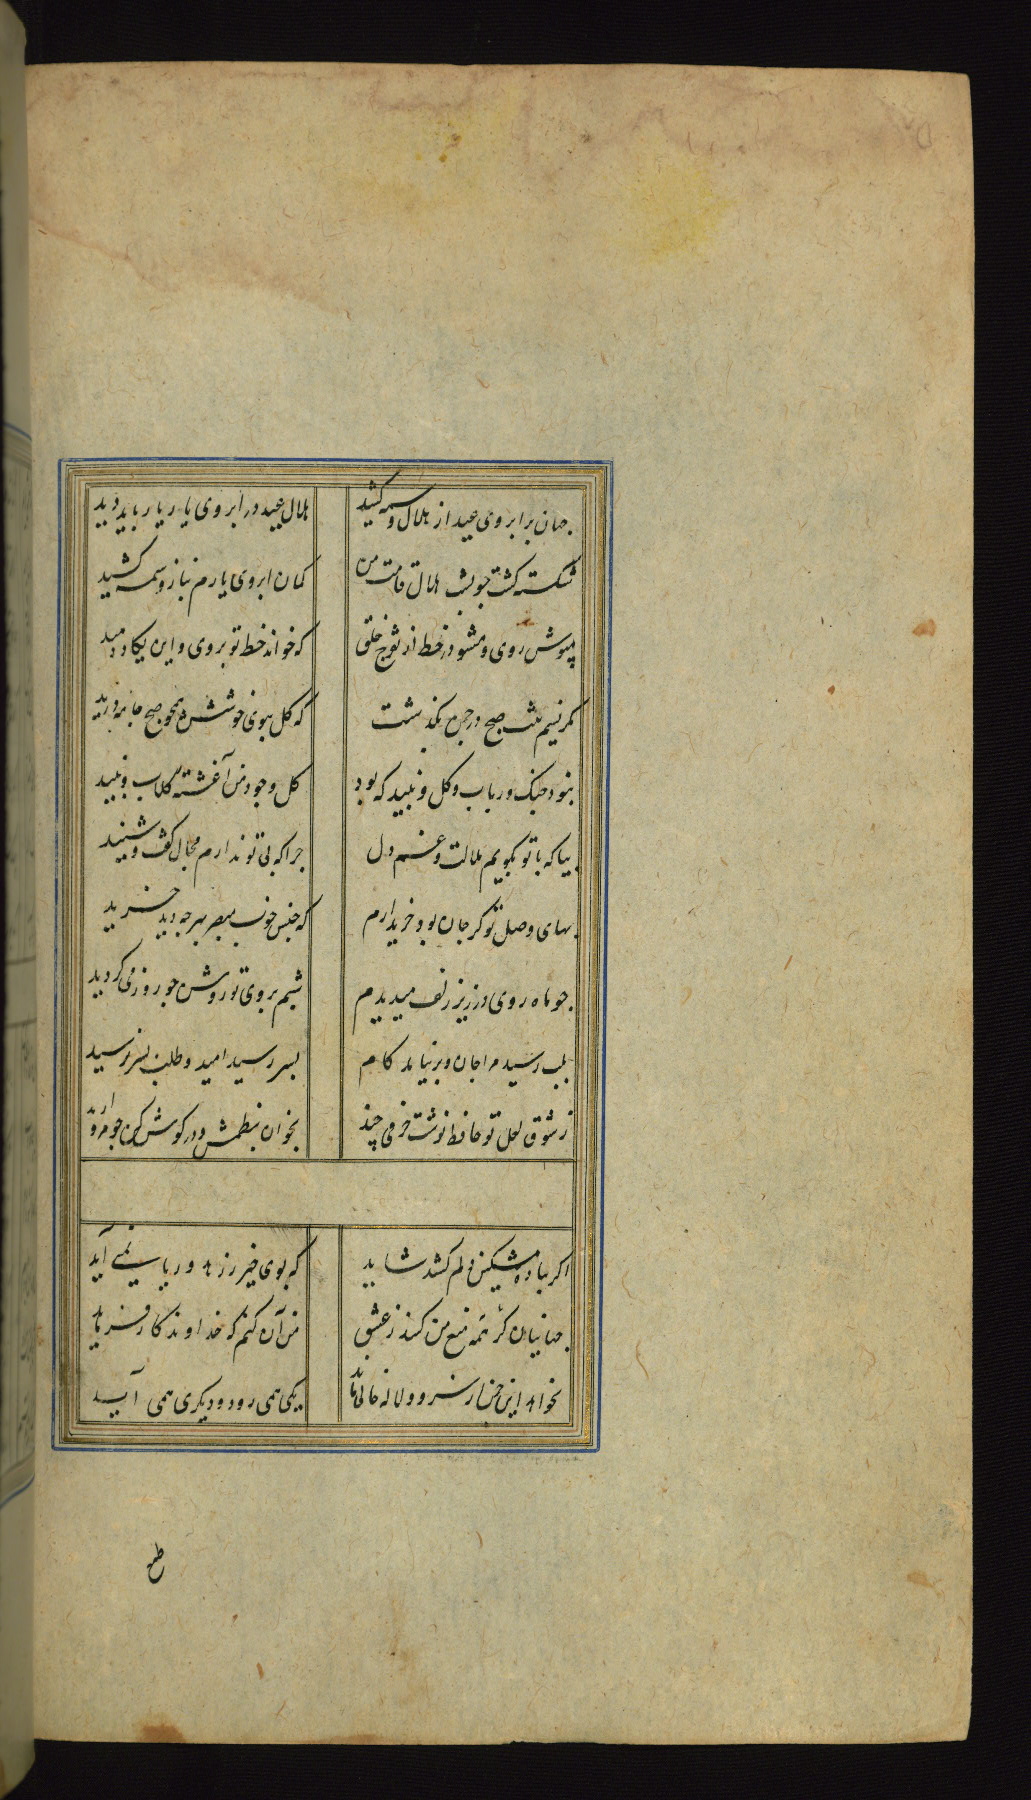 جهان بر ابروی عید از هلال وسمه کشید هلال عید در ابروی یار باید دید
شکسته کشت جو پشت هلال قامت من کمان ابروی یارم نباز وسمه کشید
مپوش روی و مشو در خط از تفرج خلق که خواند خط تو بر روی و این یکاد دمید
مکر نسیم تنت صبح در جمن بکذشت که کل ببوی خوشت همجو صبح جامه درید
نبود جنک و رباب و کل و نبید که بود کل وجود من آغشته کلاب و نبید
بیا که با تو بکویم ملالت و غم دل جرا که بی تو ندارم مجال کفت و شنید
بهای وصل تو کر جان بود خریدارم که جنس خوب مبصر بهر جه دید خرید
جو ماه روی در زیر زلف میدیدم شبم بروی تو روشن جو روز می کردید
بلب رسید مرا جان و بر نیامد کام بسر رسید امید و طلب بسر نرسید
ز شوق لعل تو حافظ نوشت حرفی چند بخوان بنظمش و در کوش کن جو مروارید
اگر بباده مشکین دلم کشد شاید که بوی خیر ز زهد و ریا نمی آید
جهانیان کر همه منع من کنند ز عشق من آن کنم که خداوندکار فرماید
نخواهد این جمن از سرو و لاله خالی ماند یکی همی رود و دیکری همی آید